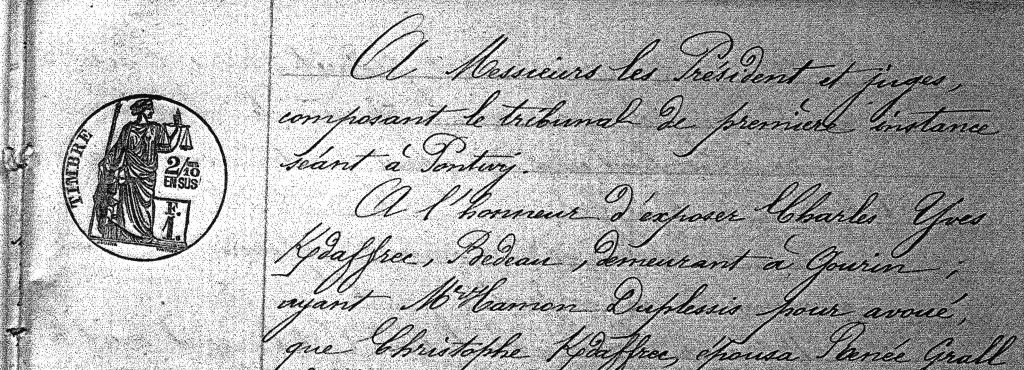 TIMBRE
2/10
EN SUS
F.
1.
A Messieurs les Président et juges,
composant le tribunal de première instance
séant à Pontivy.
A l'honneur d'exposer Charles Yves
Kdaffrec, Bedeau, demeurant à Gourin ;
ayant Me Hamon Duplessis pour avoué,
que Christophe Kdaffrec, épousa Renée Grall